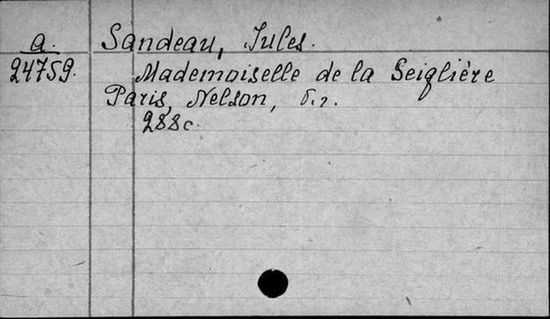 a. Sandeau, Jules.
24759. Mademoiselle de la Seiglière
Paris, Nelson, б.г.
288c.